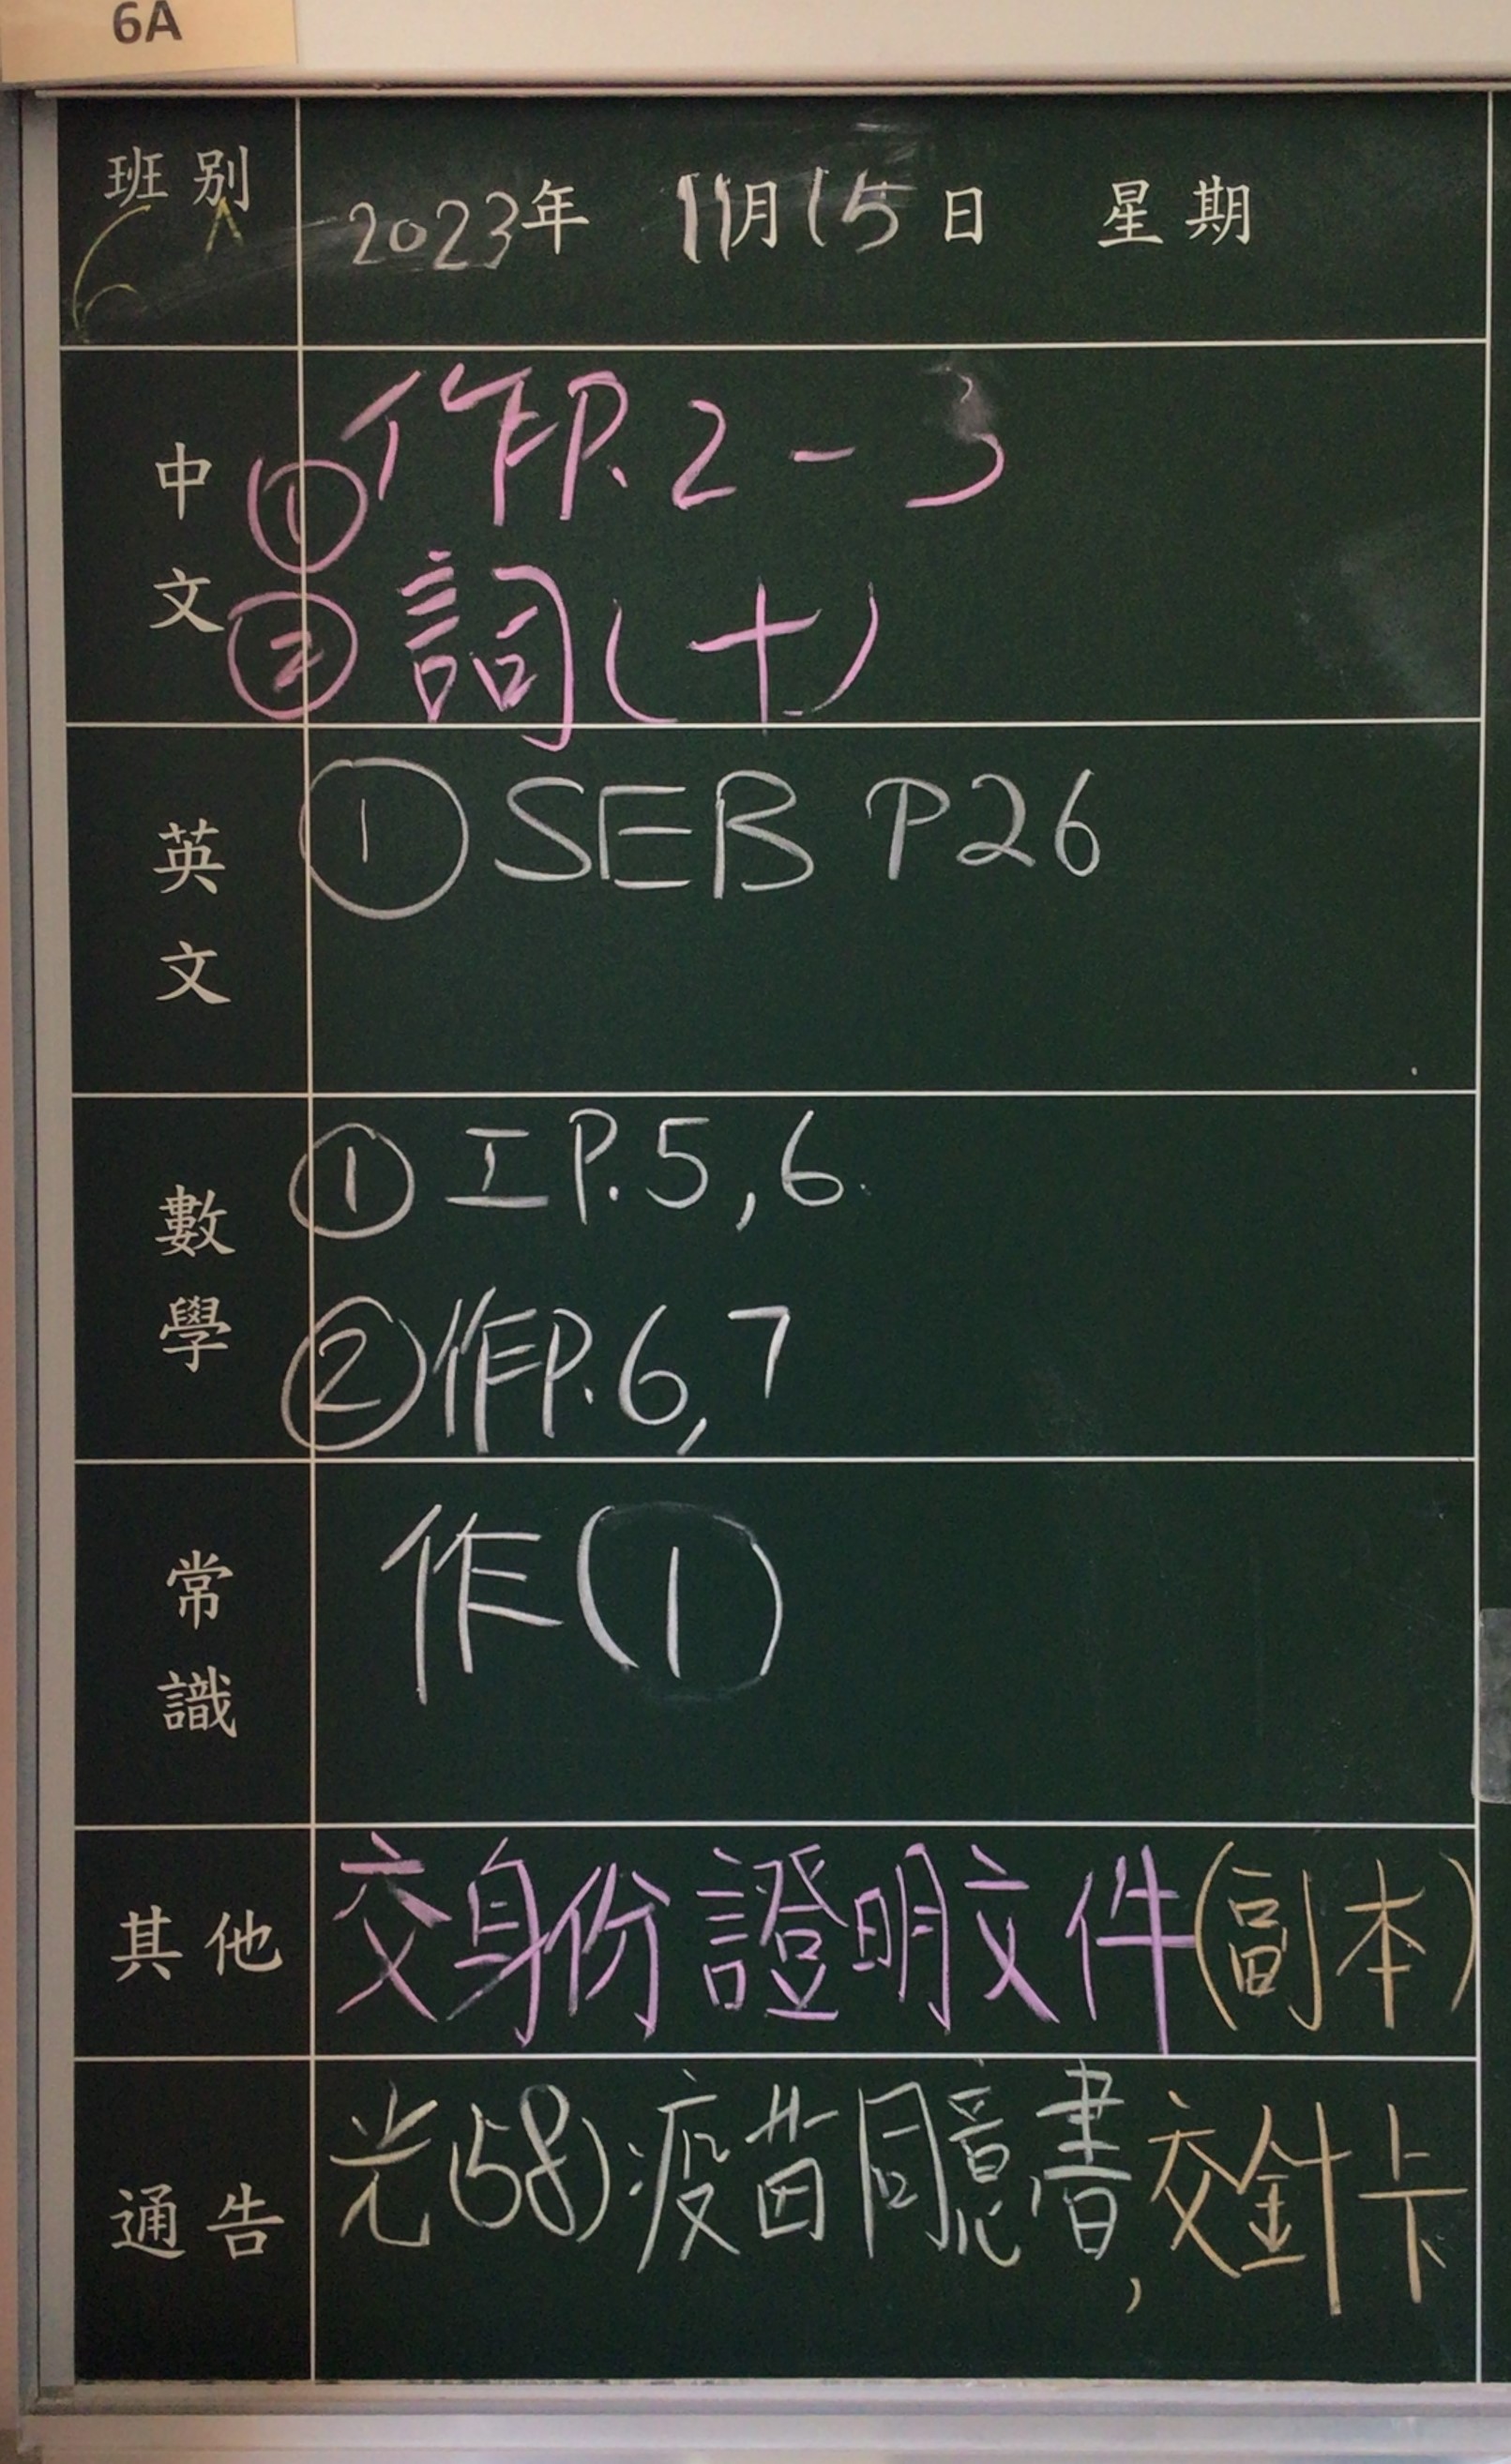 6A
班別 2023年 11月15日 星期
6A
中文 ① 作P.2-3
② 詞(十)
英文 ① SEB P26
數學 ① 工P.5,6
② 作P.6,7
常識 作(1)
其他 交身份證明文件(副本)
通告 光(58):疫苗同意書,交針卡